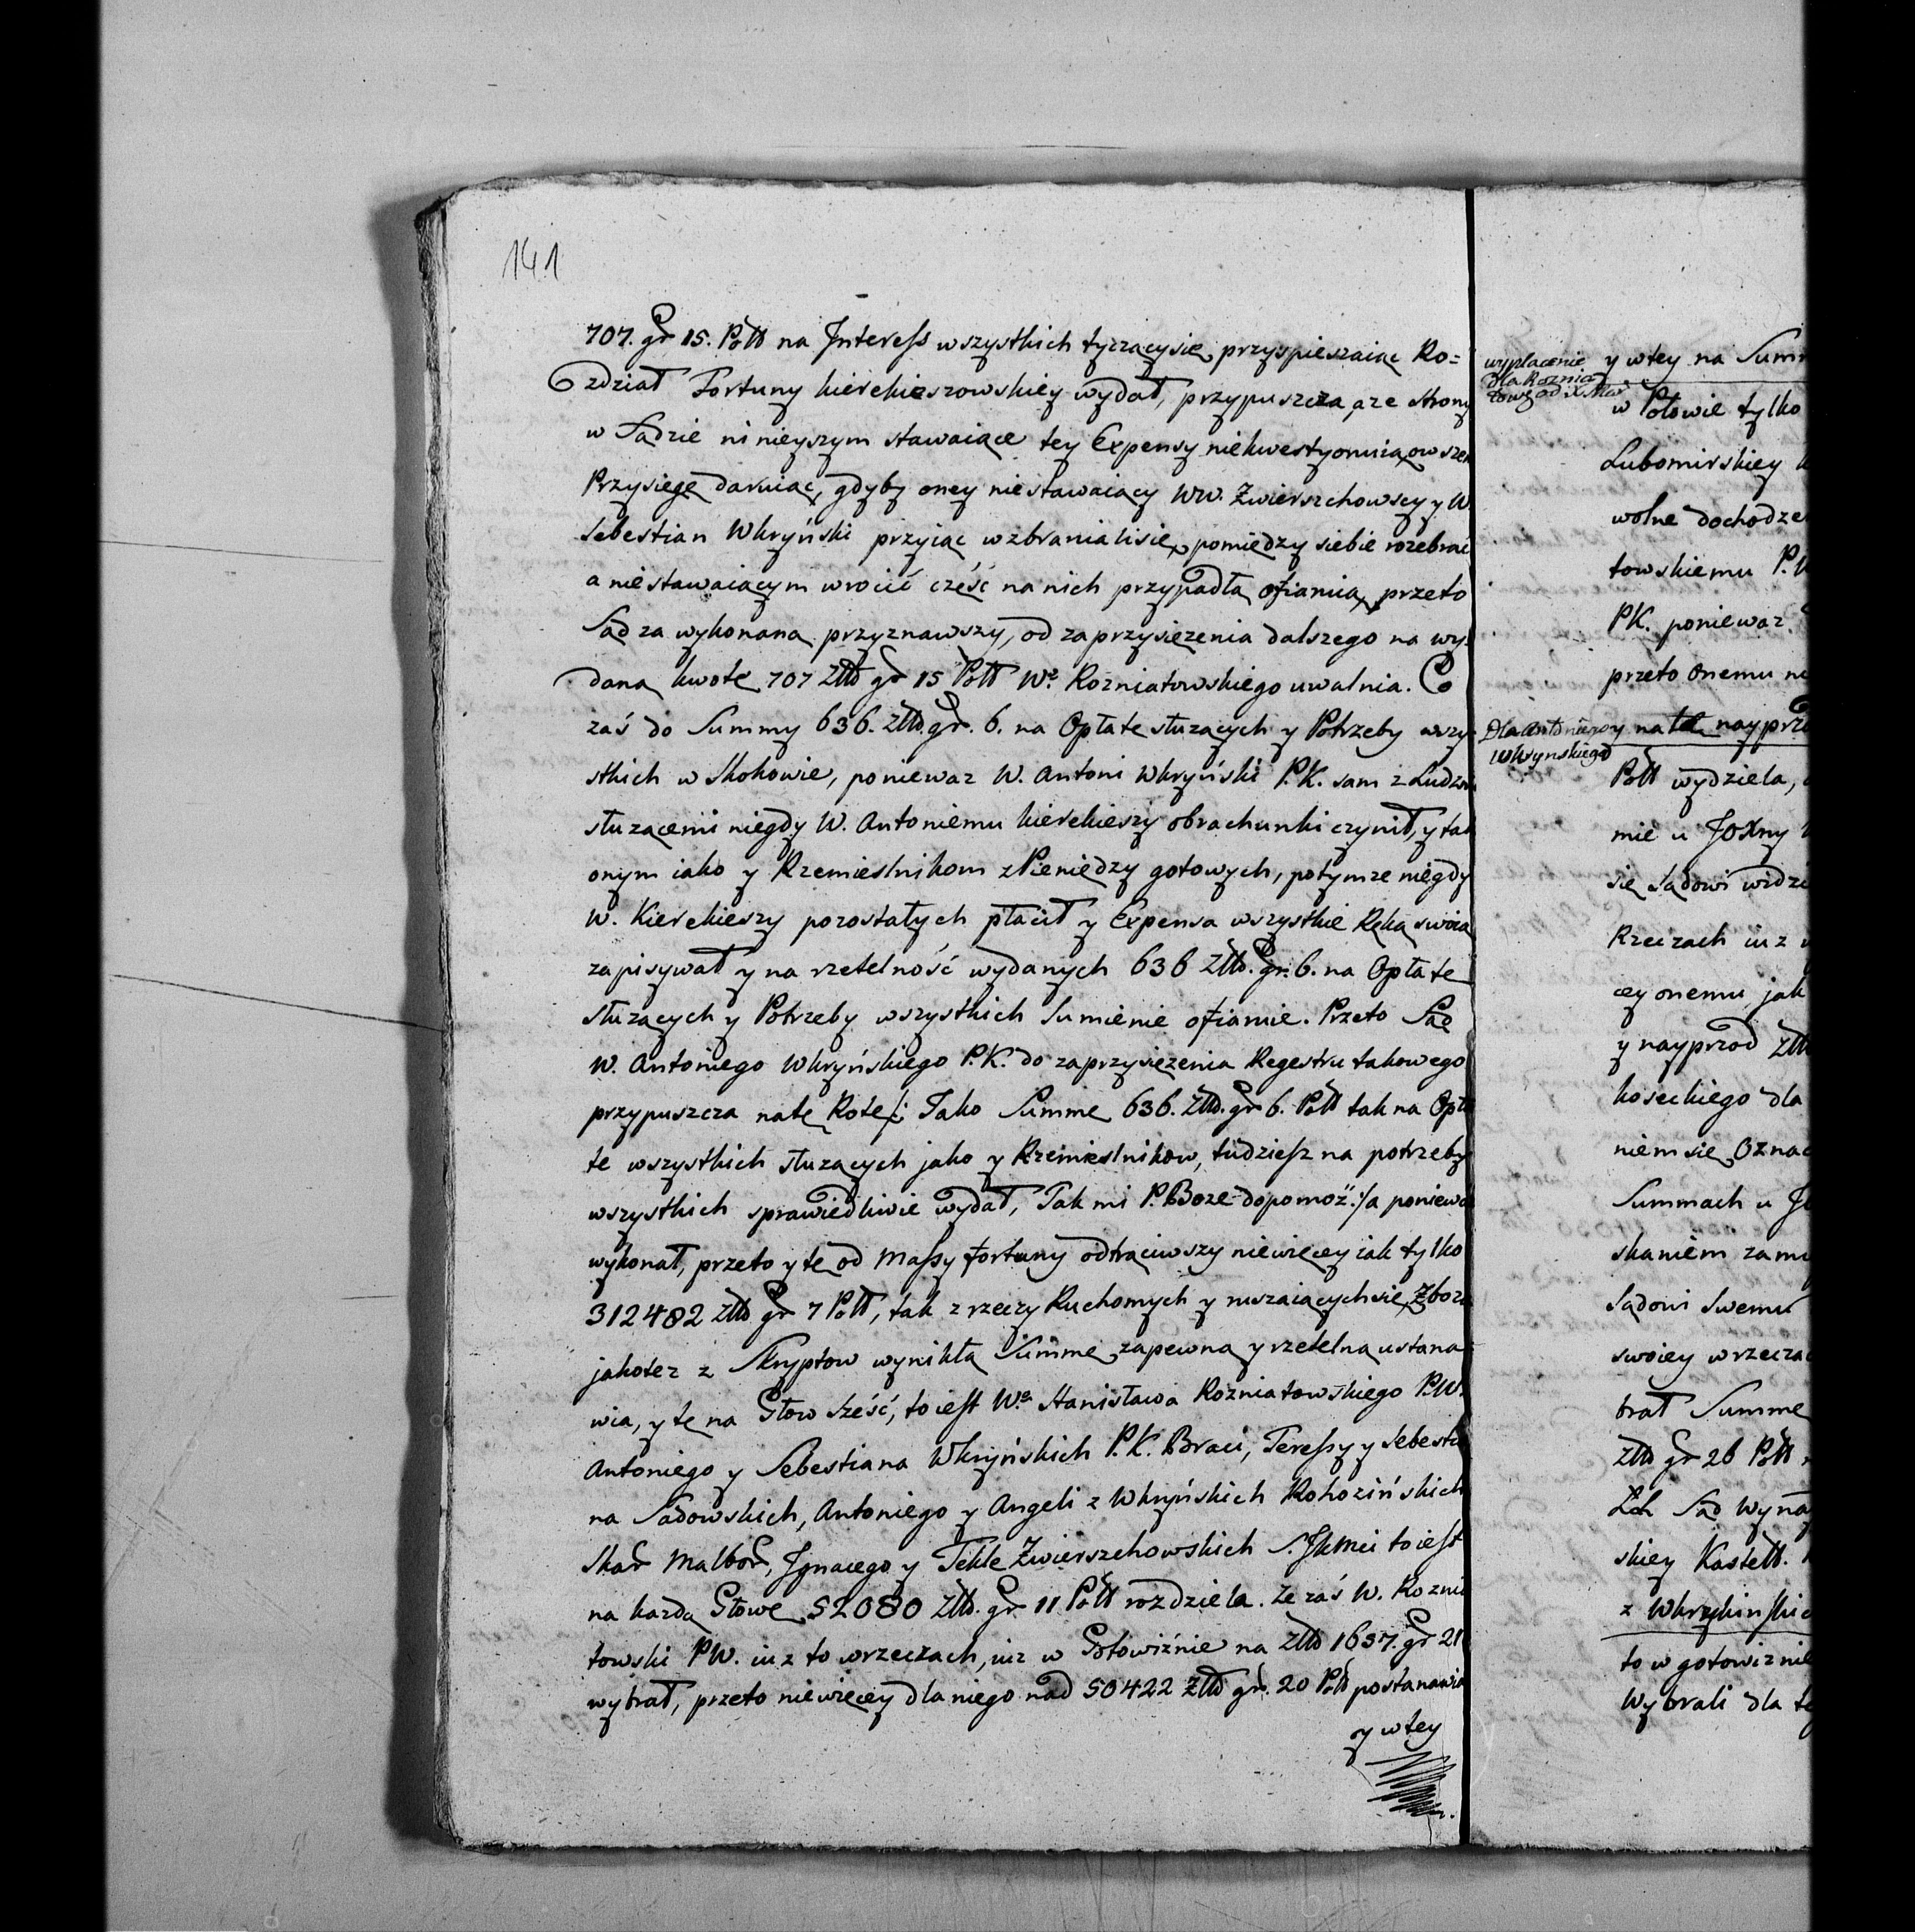 141
707. gr 15. Poll na Interess wszystkich tyczący się, przyspieszaiąc Ro=
zdział Fortuny kierekieszowskiey wydał, przypuszcza, a ze strony
w Sądzie ninieyszym stawaiące tey Expensy niekwestyonuią, owszem
Przysięgę daruiąc, gdyby oney niestawaiący WW. Zwierszchowscy y W.
Sebestian Wkryński przyiąc wzbraniali się, pomiędzy siebie rozebrać
a niestawaiącym wrocić część na nich przypadłą ofiaruią, przeto
Sąd za wykonaną przyznawszy, od zaprzysiężenia dalszego na wy-
daną kwotę 707 Zlld gr 15 Poll Wo. Rozniatowskiego uwalnia. Co
zaś do Summy 636. Zlld. gr. 6. na Opłatę służących y Potrzeby wszy-
stkich w Skokowie, poniewaz W. Antoni Wkryński P.K. sam z Ludzmi
służącemi niegdy W. Antoniemu kierekieszy obrachunki czynił, y tak
onym iako y Rzemieslnikom z Pieniędzy gotowych, potymze niegdy
W. Kierekieszy pozostałych płacił y Expensa wszystkie Ręką swoią
zapisywał y na rzetelność wydanych 636 Zlld. gr. 6. na Opłatę
służących y Potrzeby wszystkich Sumienie ofiaruie. Przeto Sąd
W. Antoniego Wkryńskiego P.K. do zaprzysiężenia Regestru takowego
przypuszcza na tę Rotę /: Jako Summę 636. Zlld. gr 6. Poll tak na Opła
tę wszystkich służących jako y Rzemieslnikow, tudziesz na potrzeby
wszystkich sprawiedliwie wydał, Tak mi P. Boze dopomoż :/ a poniewa
wykonał, przeto y tę od Massy fortuny odtrąciwszy niewięcey iak tylko
312482 Zlld gr 7 Poll, tak z rzeczy Ruchomych y ruszaiących się, Zboza
jakotez z Skryptow wynikłą Summę, zapewną y rzetelną ustana-
wia, y tę na Głow sześć, toiest Wo. Stanisława Rozniatowskiego P.W.
Antoniego y Sebestiana Wkryńskich P.K. Braci, Teressy y Sebestia
na Sadowskich, Antoniego y Angeli z Wkryńskich Rohozińskich
Skar Malbor, Ignacego y Tekle Zwierszchowskich S. JKMci toiest
na kazdą Głowę 52080 Zlld. gr 11 Poll rozdziela. Ze zaś W. Roznia
towski PW. iuz to w rzeczach, iuz w Gotowiźnie na Zlld 1637. gr 21
wybrał, przeto niewięcey dla niego nad 50422 Zlld gr. 20 Poll postanawia
y w tey
wypłacenie
dla Roznia
y w tey na Summ
w Połowie tylko
Lubomirskiey
wolne dochodze
towskiemu P.W
PK. poniewaz
przeto onemu
Dla Antoniego
Wkrynskiego
y na tę nayprz
Poll wydziela,
mie u JOXny
się Sądowi widzi
Rzeczach iuz
cey onemu jak
y nayprzod Zlld
koseckiego dla
niem się Oznac
Summach u
skaniem
Sądowi Swemu
swoiey w rzecza
brał Summę
Zlld gr 26 Poll
Sąd Wyna
skiey Kastell.
z Wkryńskic
to w gotowiznie
Wybrali dla